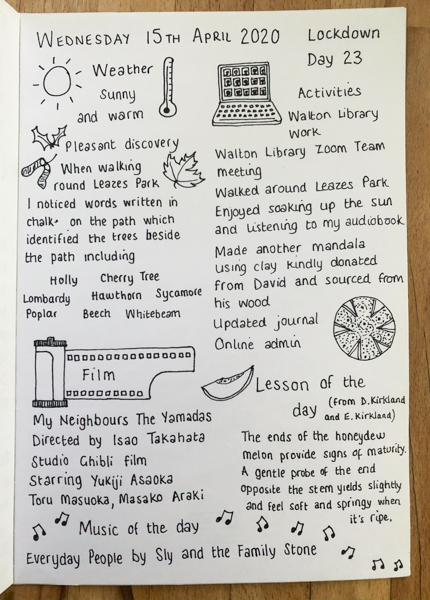 Wednesday 15th April 2020
Lockdown
Day 23
Weather
Sunny
and warm
Pleasant discovery
When walking
round Leazes Park
I noticed words written in
chalk on the path which
identified the trees beside
the path including
Holly Cherry Tree
Lombardy Hawthorn Sycamore
Poplar Beech Whitebeam
Activities
Walton Library
work
Walton Library Zoom Team
meeting
Walked around Leazes Park
Enjoyed soaking up the sun
and listening to my audiobook
Made another mandala
using clay kindly donated
from David and sourced from
his wood
Updated journal
Online admin
Film
My Neighbours The Yamadas
Directed by Isao Takahata
Studio Ghibli film
Starring Yukiji Asaoka
Toru Masuoka, Masako Araki
Lesson of the
day (from D.Kirkland
and E.Kirkland)
The ends of the honeydew
melon provide signs of maturity.
A gentle probe of the end
opposite the stem yields slightly
and feel soft and springy when
it's ripe.
Music of the day
Everyday People by Sly and the Family Stone